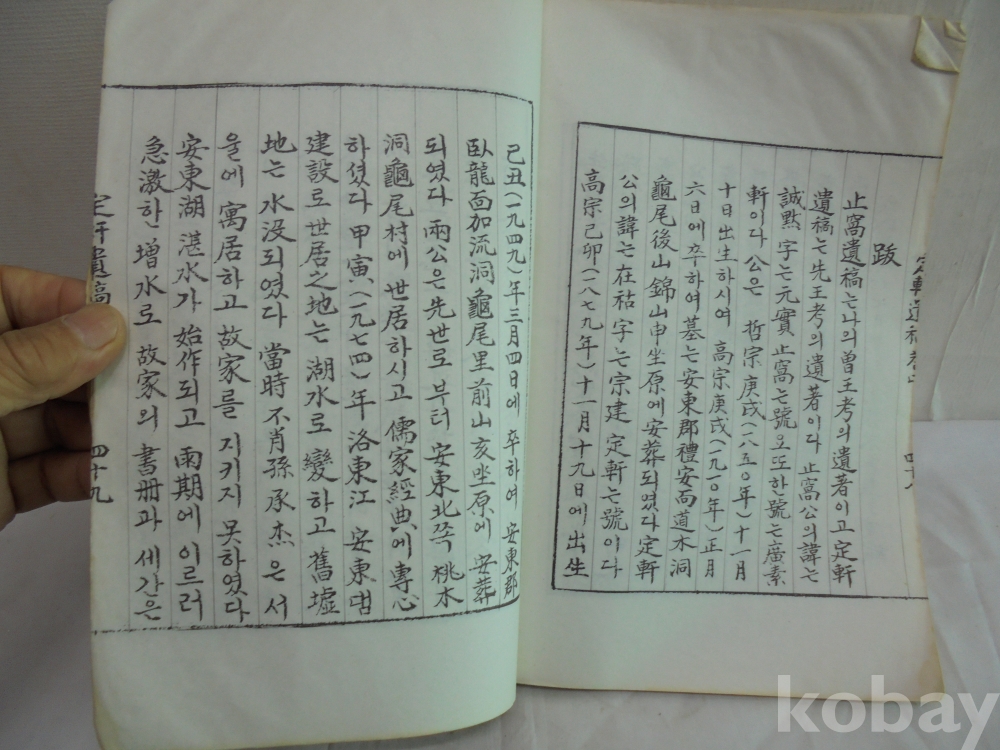 跋
止窩遺稿는나의曾王考의遺著이고定軒
遺稿는先王考의遺著이다 止窩公의諱는
誠點 字는元實 止窩는號오또한號는廣素
軒이다 公은 哲宗庚戌(一八五0年)十一月
十日出生하시여 高宗庚戌(一九一0年)正月
六日에卒하여墓는安東郡禮安面道木洞
龜尾後山錦山申坐原에安葬되였다定軒
公의諱는在祜 字는宗建 定軒는號이다
高宗己卯(一八七九年)十一月十九日에出生
己丑(一九四九)年三月四日에 卒하여 安東郡
臥龍面加流洞龜尾里前山亥坐原에 安葬
되였다 兩公은先世로부터 安東北쪽 桃木
洞龜尾村에世居하시고 儒家經典에專心
하셨다 甲寅(一九七四)年洛東江 安東댐
建設로世居之地는湖水로變하고 舊墟
地는水没되였다 當時不肖孫承杰은 서
울에寓居하고 故家를 지키지 못하였다
安東湖湛水가 始作되고 雨期에 이르러
急激한增水로故家의書册과 세간은
定軒遺稿
四十九
kobay